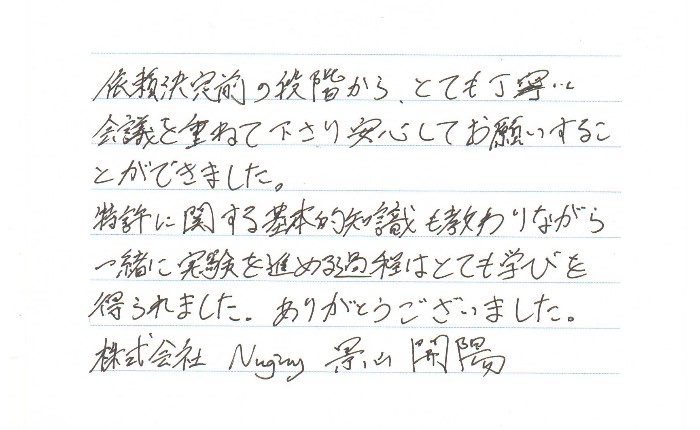 依頼決定前の段階から、とても丁寧に
会議を重ねて下さり安心してお願いするこ
とができました。
特許に関する基本的知識も教わりながら
一緒に実験を進める過程はとても学びを
得られました。ありがとうございました。
株式会社 景山 開陽